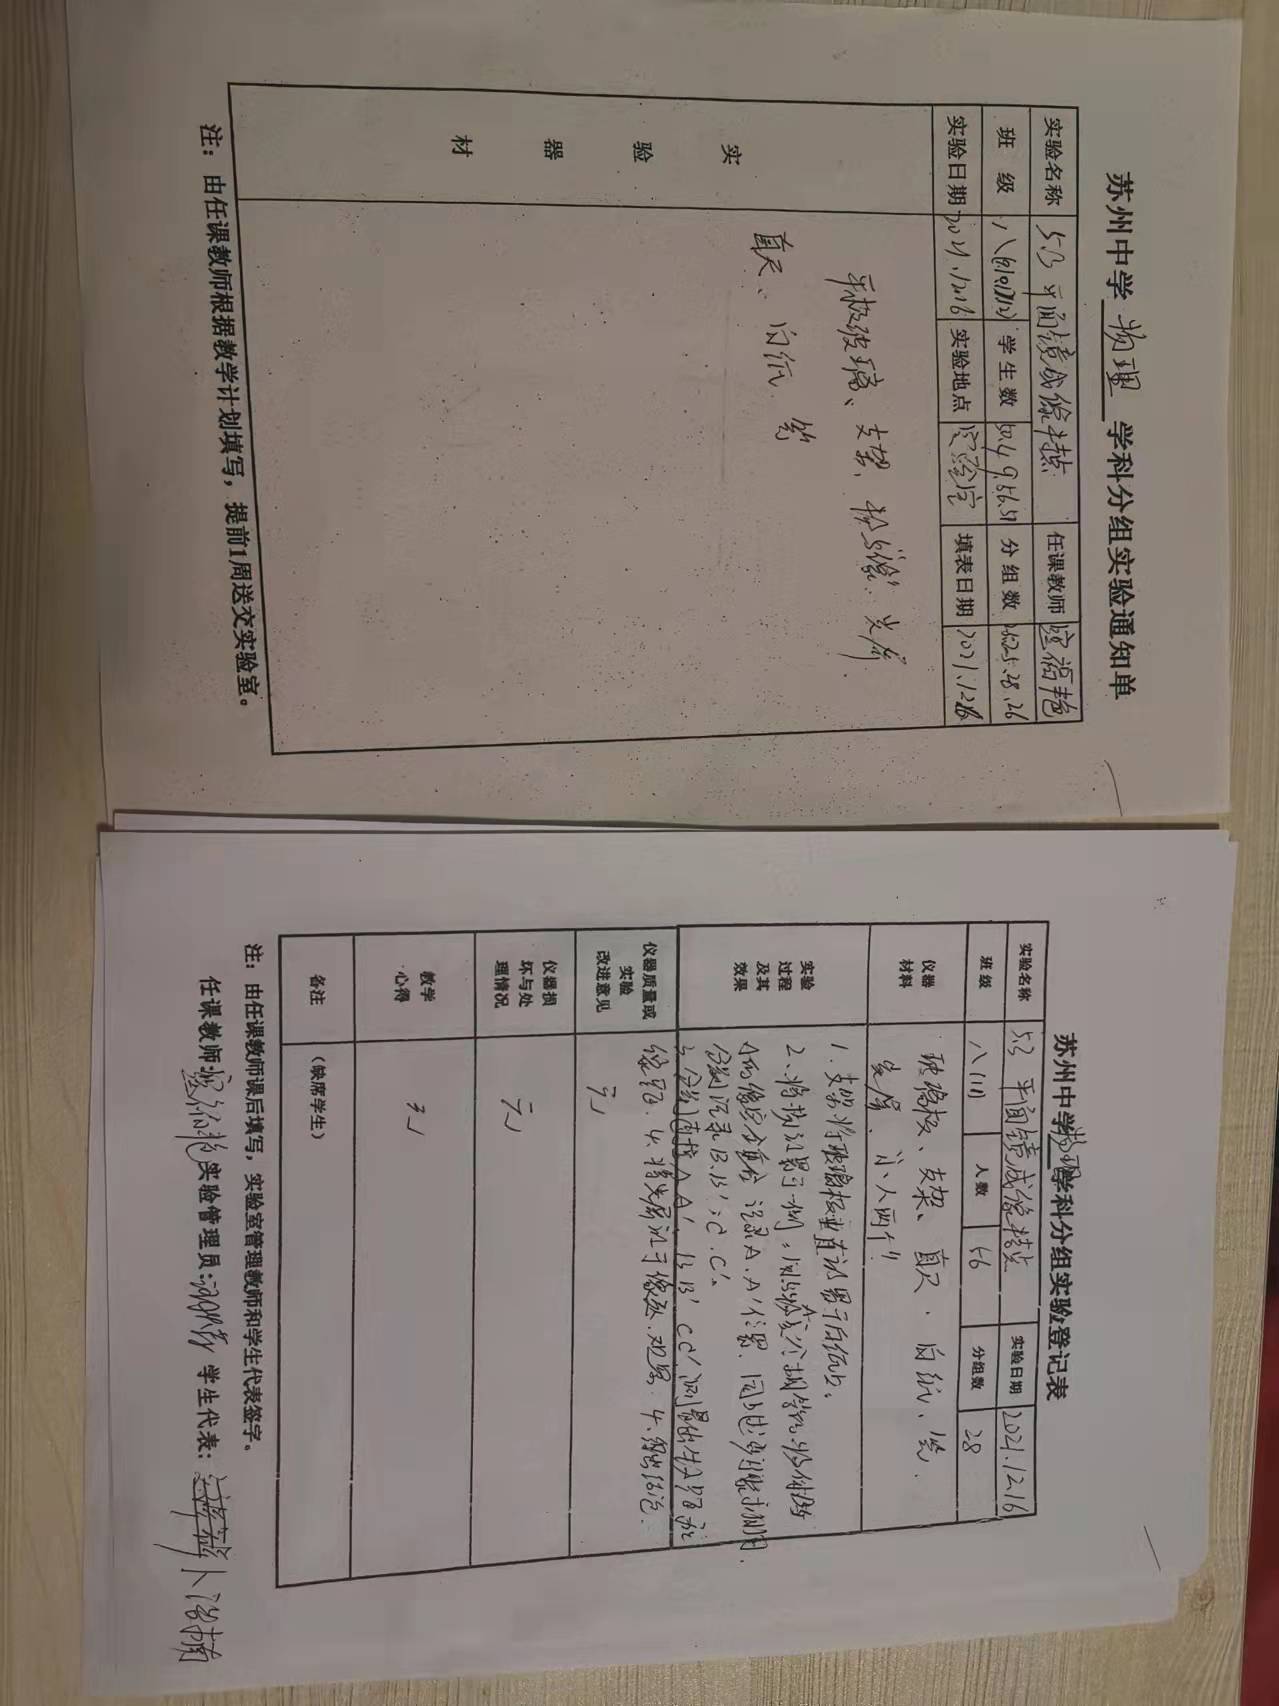 苏州中学 物理 学科分组实验通知单
实验名称 5.3 平面镜成像特点 任课教师
班 级 学生数 50.49.56.51 分组数 25.25.28.26
实验日期 2021.12.16 实验地点 实验室 填表日期 2021.12.6
实验器材
平板玻璃、支架、光屏
直尺、白纸、笔
注：由任课教师根据教学计划填写，提前1周送交实验室。
苏州中学物理学科分组实验登记表
实验名称 5.3 平面镜成像特点 实验日期 2021.12.16
班级 八(11) 人数 56 分组数 28
仪器材料 玻璃板、支架、直尺、白纸、笔、
光屏、小人两个
实验过程及其效果 1.支架将玻璃板垂直放置于白纸上。
2.将物放置于一侧，
的像完全重合 记录A、A'位置，
分别记录B、B'；C、C'。
3.分别连接AA'、BB'、CC'测量出
像距。4.将光屏放于像处，观察。4.得出结论。
仪器质量或实验改进意见 无
仪器损坏与处理情况 无
教学心得 无
备注 （缺席学生）
注：由任课教师课后填写，实验室管理教师和学生代表签字。
任课教师： 实验管理员： 学生代表：